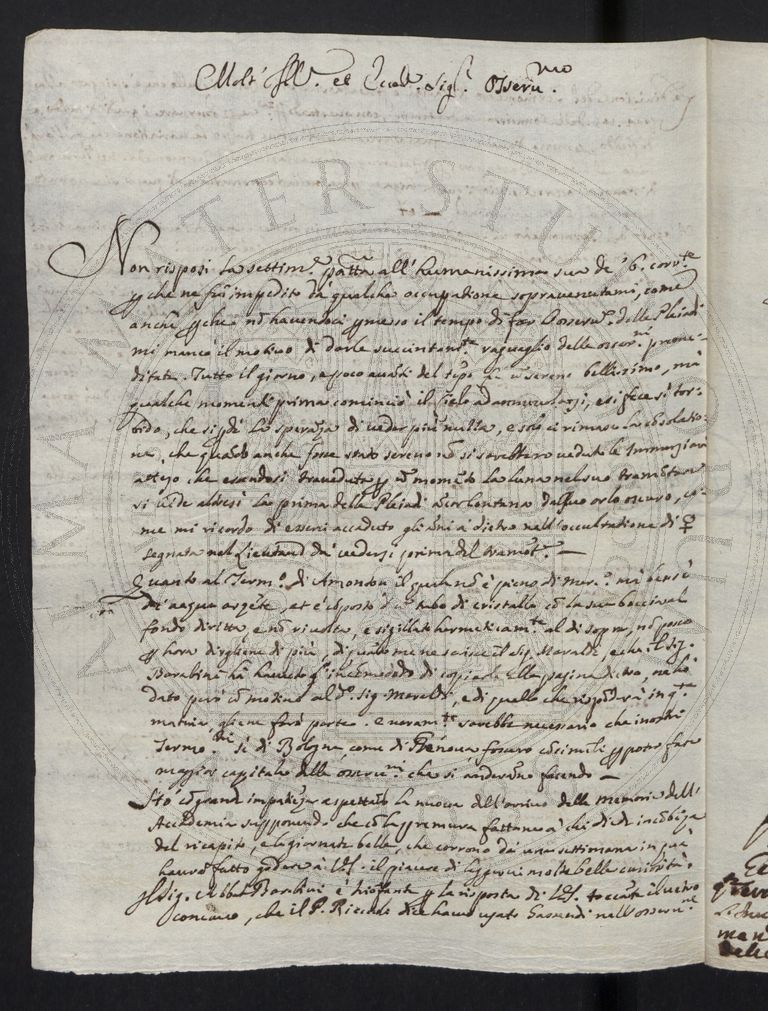 Molt' Ill.e et Eccell. Sig.r Osserv.mo
Non risposi la settim.a passata all'humanissima sua de' 6. corr.te
che ne fui impedito da qualche occupatione sopravenutami, come
anche che nõ havendoci permesso il tempo di far l'osserv.e delle Pleiadi
mi mancò il motivo di darle succintam.te ragguaglio delle osser.ni preme-
ditate. Tutto il giorno, e poco avanti del tempo sereno bellissimo, mà
qualche momento prima cominciò il Cielo ad annuvolarsi, e si fece sì tor-
bido, che si pdè la speranza di veder più nulla, e solo ci rimase la cõsolatio-
ne, che quando anche fosse stato sereno nõ si sarebbero vedute le Immersioni
atteso che essendosi traveduta p ũ momẽto la luna nel suo tramõtare
si vide la prima delle Pleiadi ancor lontana dal suo orlo oscuro, co-
me mi ricordo di esserci accaduto gli ãni à dietro nell'occultatione di ♀
segnata nel da vedersi prima del tramõt.e —
Quanto al Term.o di Amonton il quale nõ è pieno di Mer.o mà bensì
di acqua et è cõposto d'ũ tubo di cristallo cõ la sua boccia al
fondo diritta, e nõ rivolta, e sigillato hermeticam.te al di sopra, nõ posso
p hora dirglene di più, di quello me ne scrisse il Sig. Maraldi, e che il Sig.
Barabini hà havuto l'incõmodo di copiarle alla pagina dietro, ne hò
dato però cõ motivo al d.o Sig. Maraldi, e di quello che rispõderà in q.ta
materia gliene farò parte. e veram.te sarebbe necessario che i nostri
Termo.tri sì di Bologna come di Genova fossero cõsimili p poter fare
maggior capitale delle osserv.ni che si anderãno facendo —
Stò cõ grand'impatiẽza aspettãdo la nuova dell'arrivo delle Memorie dell'
Accademia supponendo che cõ la premura fattane à chi diede incõbẽza
del ricapito, e le giornate belle, che corrono da una settimana in quà
haurà fatto godere à V.S. il piacere di leggervi molte belle curiosità.
Il Sig. Abbate Barabini è triofante p la risposta di V.S. toccante il vetro
concavo, che il P. Riccioli dice haver usato Gassendi nell'osserv.ne